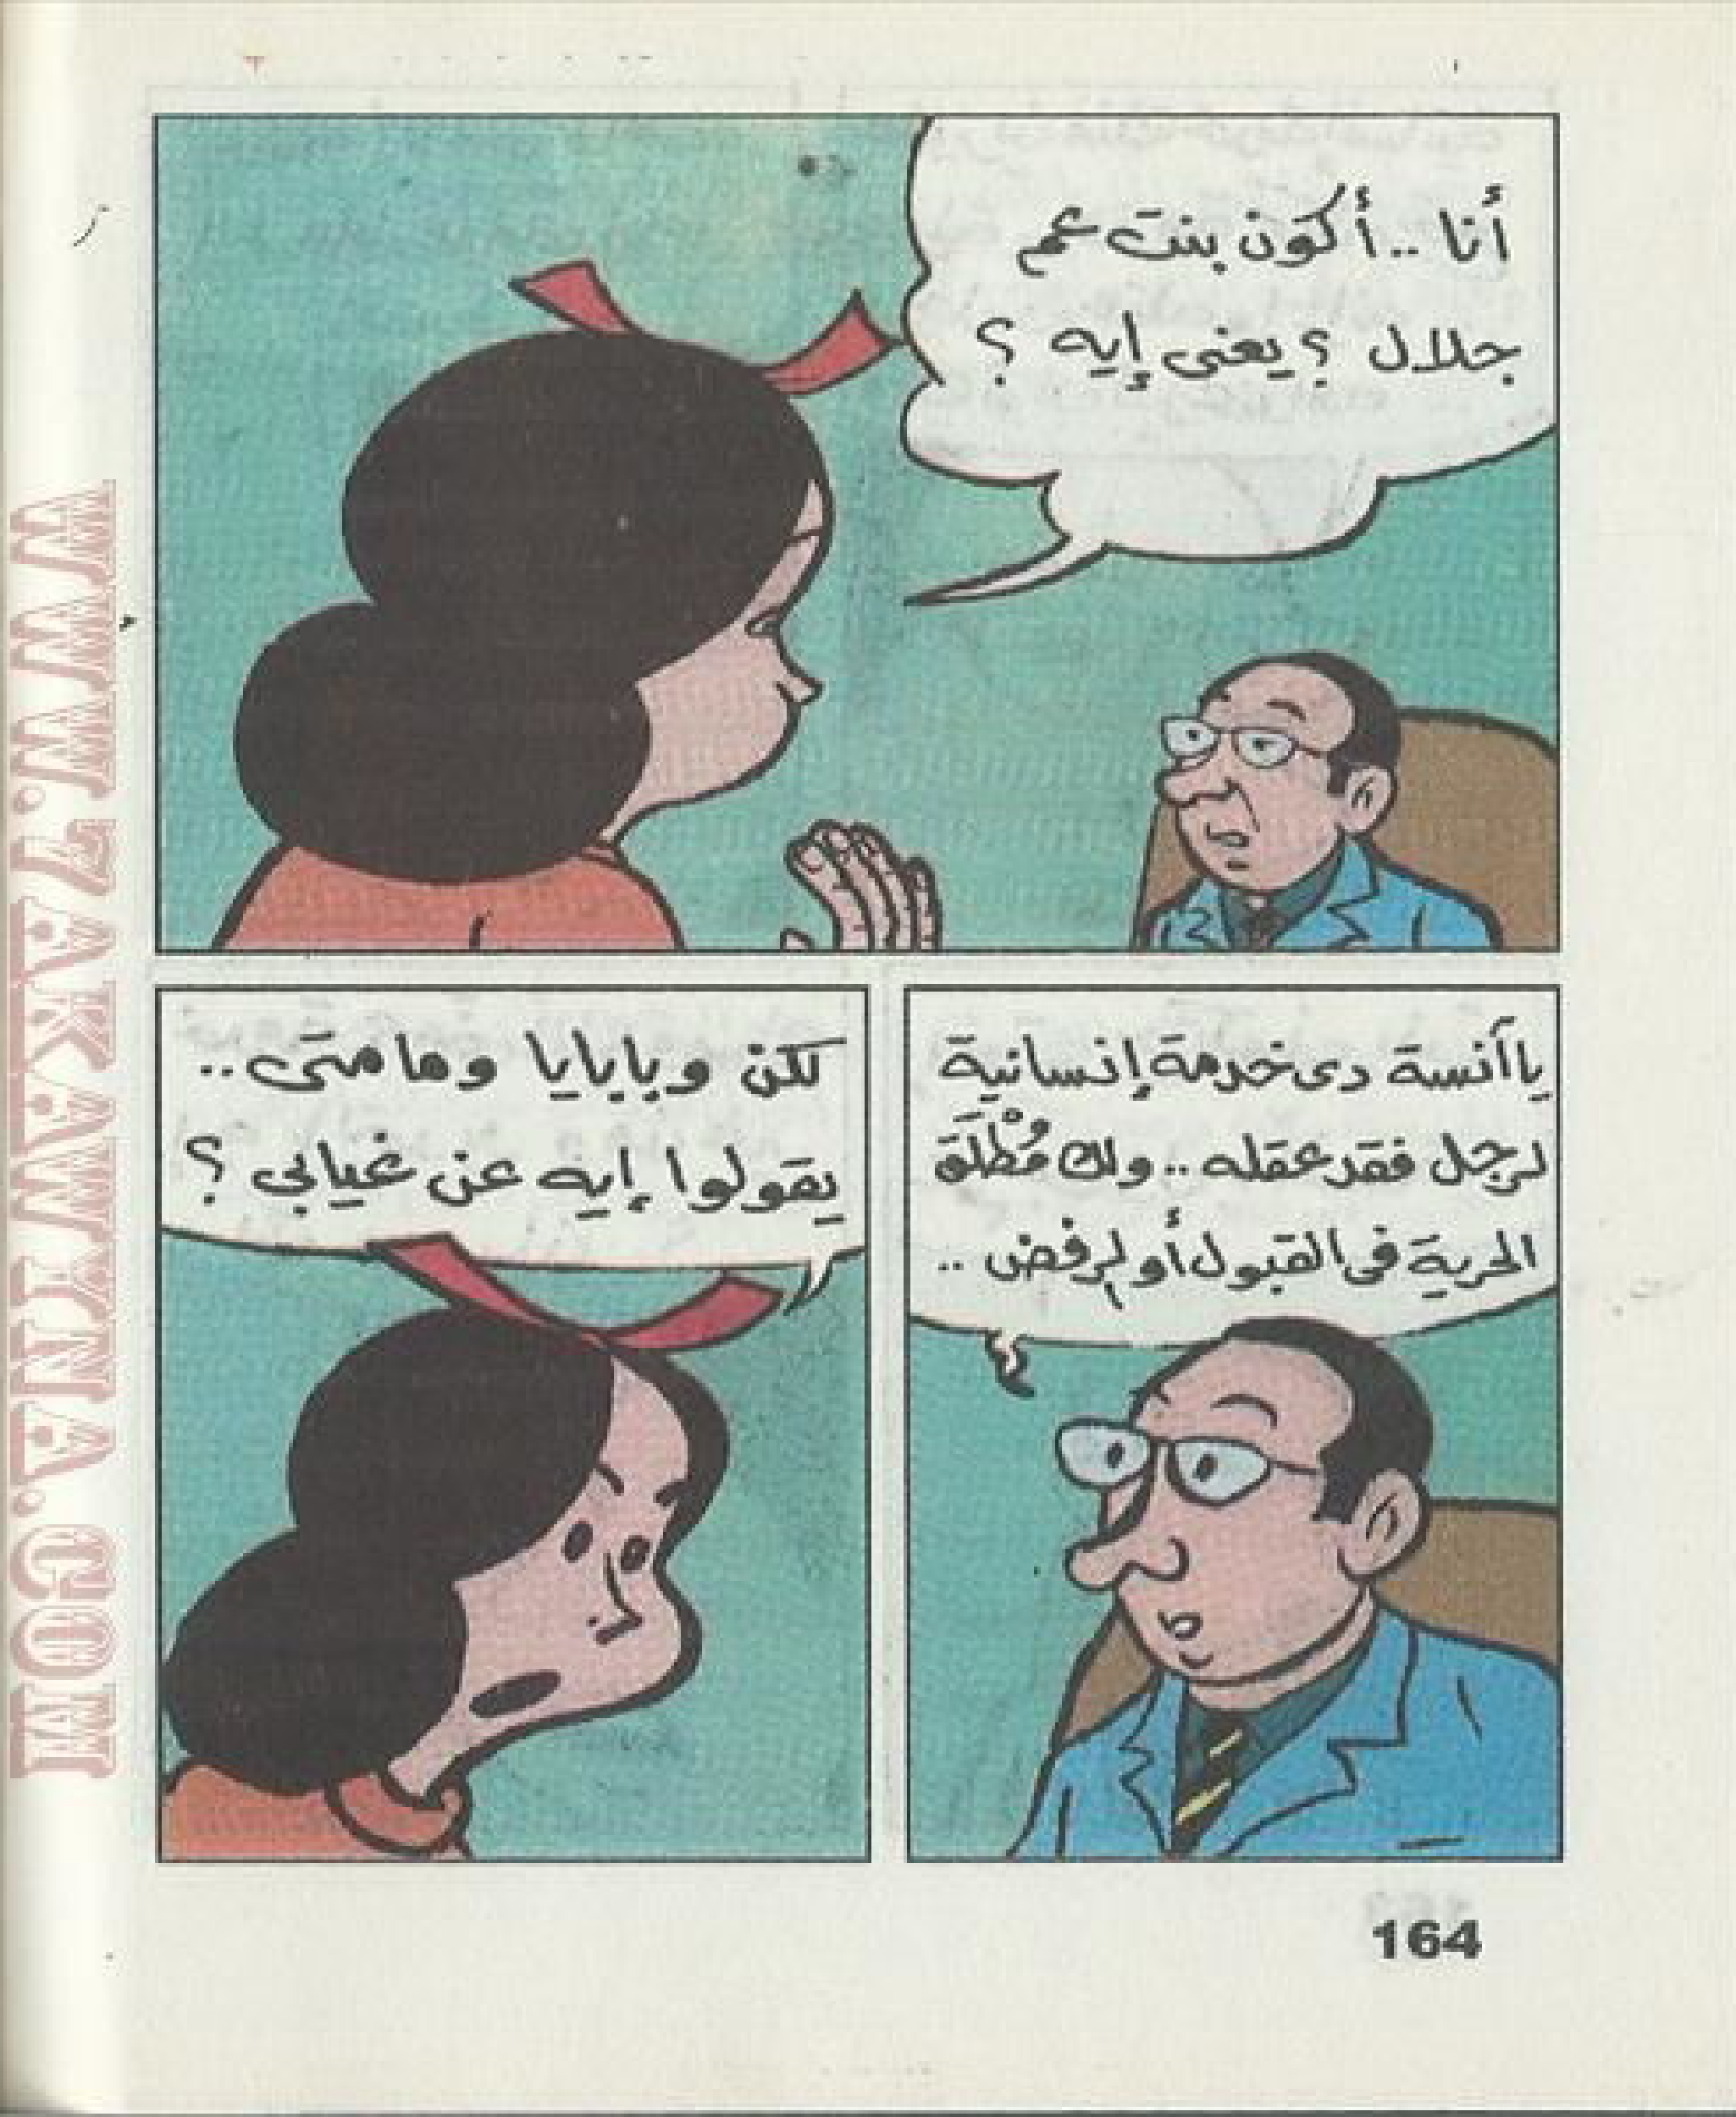 أنا .. أكون بنت عم
جلال ؟ يعنى إيه ؟
يا آنسة دى خدمة إنسانية
لرجل فقد عقله .. ولك مُطْلَق
الحرية فى القبول أو الرفض ..
لكن وبابايا ومامتى ..
يقولوا إيه عن غيابى ؟
164
WWW.7AKAWINA.COM